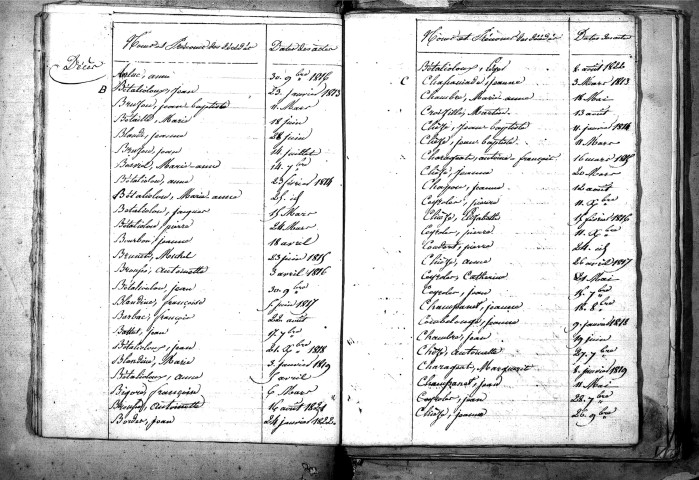 Noms et Prénoms des décédés Dates des actes
Décès
Arlac, anne 30. 9bre 1816
B Bétaliolou, Jean 23. janvier 1813
Brujou, jeanne baptiste 4. Mars
Bétaille, Marie 18 juin
Blande, jeanne 28 juin
Brujou, jean 24 juillet
Bassol, Marie anne 14. 7bre
Bétaliolou, anne 23 février 1814
Bétaliolou, Marie anne 25. id
Bétaliolou, jacques 15 Mars
Bétaliolou, pierre 24 Mars
Bourbon, jeanne 18 avril
Brunet, Michel 23 juin 1815
Broufs, Antoinette 3 avril 1816
Bétaliolou, jean 30. 9bre
Blandine, françoise 5 juin 1817
Barbac, françois 22 août
Battut, jean 17. 7bre
Bétaliolou, jean 21. Xbre 1818
Blandine, Marie 3. janvier 1819
Bétaliolou, anne 5 avril
Bigorie, françoise 6 Mars
Broufs, Antoinette 16 août 1821
Bordes, Jean 24 janvier 1822
Noms et Prénoms des décédés Dates des actes
Bétaliolou, 8 août 1822
C Chassaniade, jeanne 3. Mars 1813
Chambre, Marie anne 14 Mai
Croizille, Martin 13 août
Chièze, Jeanne baptiste 11. janvier 1814
Chièze, jean baptiste 11 Mars
Charaguat, antoine françois 16 mars 1815
Chièze, jeanne 20 Mars
Chapou, jeanne 12 août
Cepeder, pierre 11. Xbre
Chièze, Elizabeth 15 février 1816
Cepeder, pierre 11. Xbre
Coudert, pierre 24. id
Chièze, anne 26 avril 1817
Cepeder, Catherine 21 Mai
Cepeder, jean 15. 7bre
Champanet, jeanne 18. 8bre
jeanne 9. janvier 1818
Chambre, jean 19 juin
Chièze, Antoinette 27. 7bre
Charaguat, Marguerite 8. janvier 1819
Champanet, jean 11 Mai
Cepeder, jean 28. 7bre
Chièze, jeanne 26. 9bre